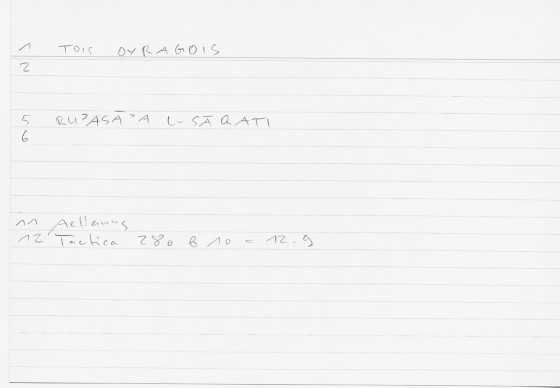 1 TOIS OYRAGOIS
2
5 RUʾASĀʾA L-SĀQATI
6
11 Aelianus
12 Tactica 280 B 10 = 12.9